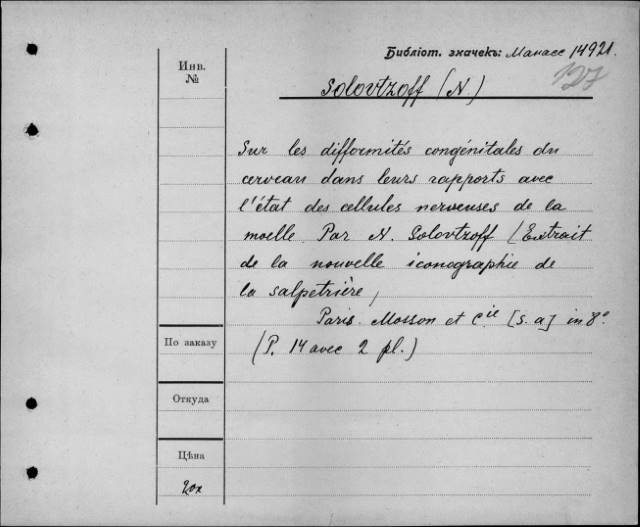 Библіот. значекъ: Манасе 14921.
127
Инв.
№
Solovtzoff (N.)
Sur les difformités congénitales du
cerveau dans leurs rapports avec
l'état des cellules nerveuses de la
moelle. Par N. Solovtzoff (Extrait
de la nouvelle iconographie de
la salpetrière,
Paris. Mosson et Cie [s. a] in 8°
(P. 14 avec 2 pl.)
По заказу
Откуда
Цѣна
20к